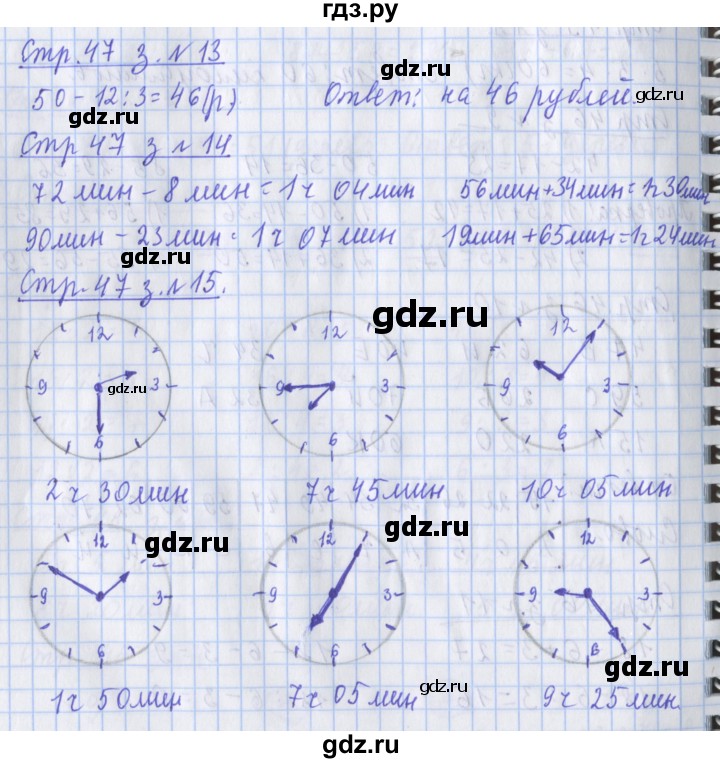 гдз.ру
Стр. 47 з. №13
50 - 12 : 3 = 46 (р.) Ответ: на 46 рублей.
gdz.ru
Стр 47 з №14
72 мин - 8 мин = 1 ч 04 мин 56 мин + 34 мин = 1ч 30 мин
90 мин - 23 мин = 1 ч 07 мин 19 мин + 65 мин = 1ч 24 мин
gdz.ru
Стр. 47 з. №15.
gdz.ru
12 12 12
9 gdz.ru 3 9 3 9 3
6 6 6
2 ч 30 мин 7 ч 45 мин 10 ч 05 мин
gdz.ru
gdz.ru
12 12 12
9 3 9 3 9 3
6 6 6
gdz.ru
1 ч 50 мин 7 ч 05 мин 9 ч 25 мин
gdz.ru
gdz.ru